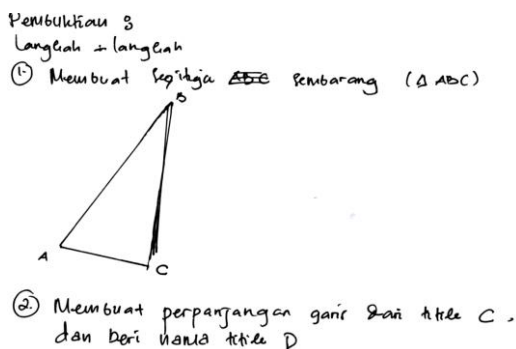 Pembuktian :
Langkah - langkah
① Membuat segitiga ABC sembarang (Δ ABC)
B
A
C
② Membuat perpanjangan garis dari titik C,
dan beri nama titik D